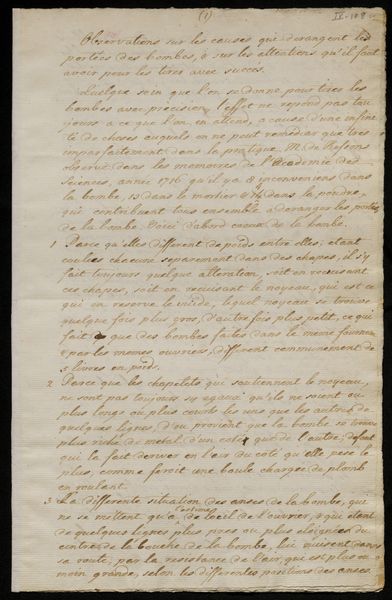 (1)
Observations sur les causes qui derangent les
portées des bombes, & sur les attentions qu'il faut
avoir pour les tirer avec succés.
Quelque soin que l'on se donne pour tirer les
bombes avec precision, l'effet ne repond pas tou
jours a ce que l'on en attend, a cause d'une infini
té de choses auquels on ne peut remedier que tres
imparfaitement dans la pratique. M. de Ressons
observe dans les memoires de l'Academie des
Sciences, année 1716 qu'il y a 8 inconveniens dans
la bombe, 13 dans le mortier & 4 dans la poudre,
qui contribuent tous ensemble a deranger les portées
de la bombe. Voici d'abord ceux de la bombe.
1 Parce qu'elles different de poids entre elles; etant
coulées chacune separement dans des chapes, il s'y
fait toujours quelque alteration, soit en recuisant
ces chapes, soit en recuisant le noyeau, qui est ce
qui en reserve le vuide, lequel noyeau se trouve
quelque fois plus gros, d'autre fois plus petit, ce qui
fait que des bombes faites dans le meme fourneau
& par les memes ouvriers, different communement de
5 livres en poids.
2 Parce que les chapelets qui soutiennent le noyeau,
ne sont pas toujours si egaux qu'ils ne soient ou
plus longs ou plus courts les uns que les autres de
quelques lignes, d'ou provient que la bombe se trouve
plus riche de metal d'un coté que de l'autre; defaut
qui la fait deriver en l'air du coté qu'elle pese le
plus, comme feroit une boule chargée de plomb
en roulant.
3 La differente situation des anses de la bombe, qui
ne se mettent qu'a l'estime de l'oeil de l'ouvrier, & qui etant
de quelques lignes plus pres ou plus eloignées du
centre de la bouche de la bombe, lui nuisent dans
sa route, par la resistance de l'air qui est plus ou
moin grande, selon les differentes positions des anses.